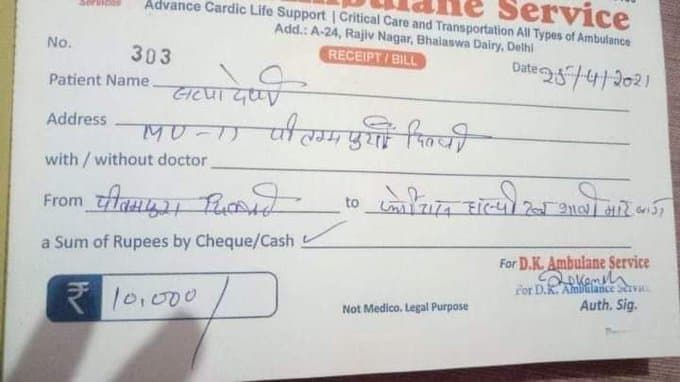 Ambulane Service
Services
Advance Cardic Life Support | Critical Care and Transportation All Types of Ambulance
Add.: A-24, Rajiv Nagar, Bhalaswa Dairy, Delhi
No. 303
RECEIPT / BILL
Date 25/4/2021
Patient Name
Address MU-11 पीतमपुरा दिल्ली
with / without doctor
From पीतमपुरा दिल्ली to फोर्टिस
a Sum of Rupees by Cheque/Cash ✓
₹ 10,000/
For D.K. Ambulane Service
For D.K. Ambulance Service
Not Medico. Legal Purpose
Auth. Sig.